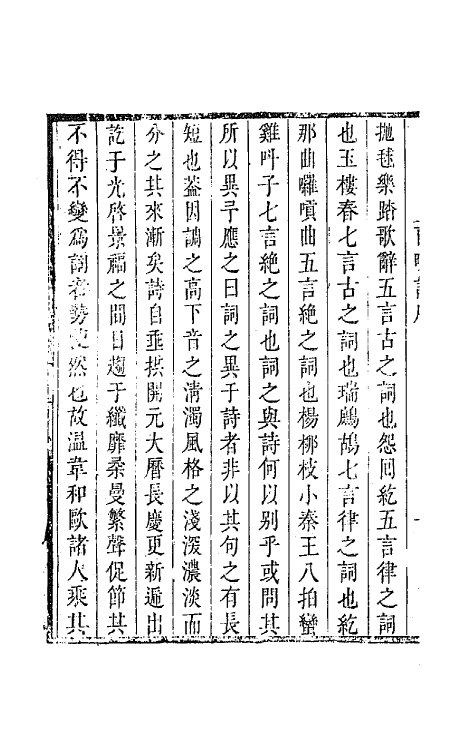 拋毬樂踏歌辭五言古之詞也怨囘紇五言律之詞
也玉樓春七言古之詞也瑞鷓鴣七言律之詞也紇
那曲囉嗊曲五言絶之詞也楊柳枝小秦王八拍蠻
雞叫子七言絶之詞也詞之與詩何以别乎或問其
所以異予應之曰詞之異于詩者非以其句之有長
短也葢因調之高下音之清濁風格之淺深濃淡而
分之其來漸矣詩自垂拱開元大曆長慶更新遞出
訖于光啓景福之間日趨于纖靡柔曼繁聲促節其
不得不變爲詞者勢使然也故温韋和歐諸人乘其